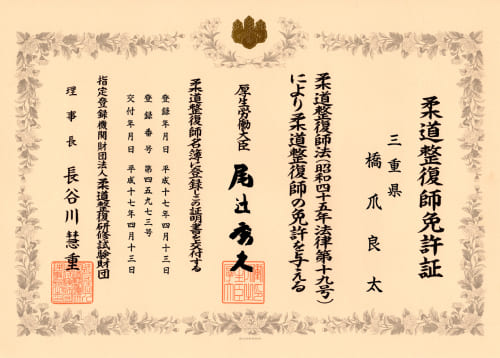 柔道整復師免許証
三重県
橋爪良太
柔道整復師法(昭和四十五年法律第十九号)
により柔道整復師の免許を与える
厚生労働大臣 尾辻秀久
柔道整復師名簿に登録しこの証明書を交付する
登録年月日 平成十七年四月十三日
登録番号 第四五九七三号
交付年月日 平成十七年四月十三日
指定登録機関財団法人柔道整復研修試験財団
理事長 長谷川慧重